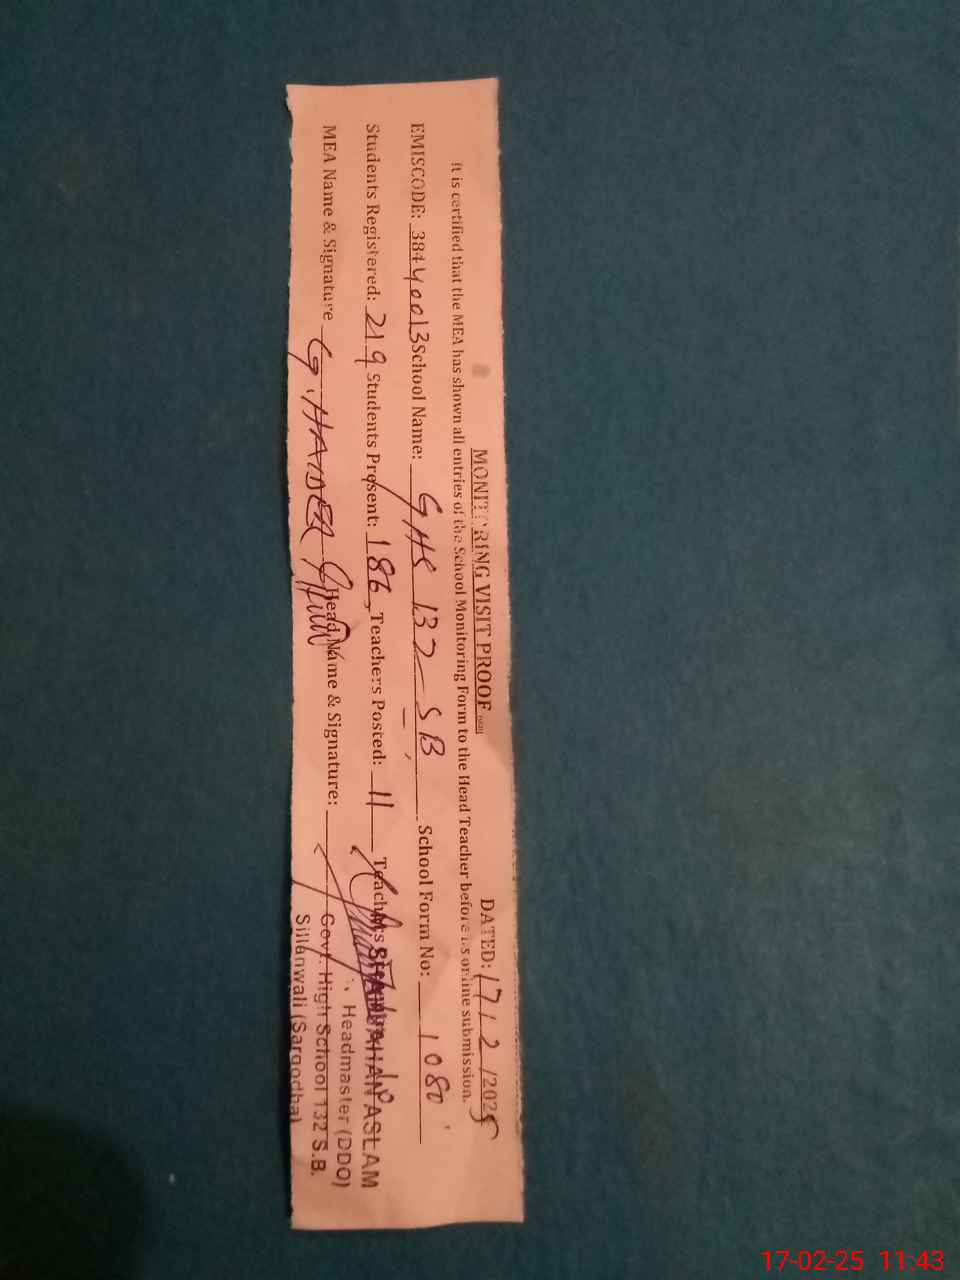 MONITORING VISIT PROOF DATED: 17/2/2025
It is certified that the MEA has shown all entries of the School Monitoring Form to the Head Teacher before its online submission.
EMISCODE: 38440013 School Name: GHS 132-SB School Form No: 1080
Students Registered: 219 Students Present: 186, Teachers Posted: 11 Teachers
MEA Name & Signature G. HAIDER Head Name & Signature:
ASLAM
Headmaster (DDO)
Govt. High School 132 S.B.
Sillanwali (Sargodha)
17-02-25 11:43